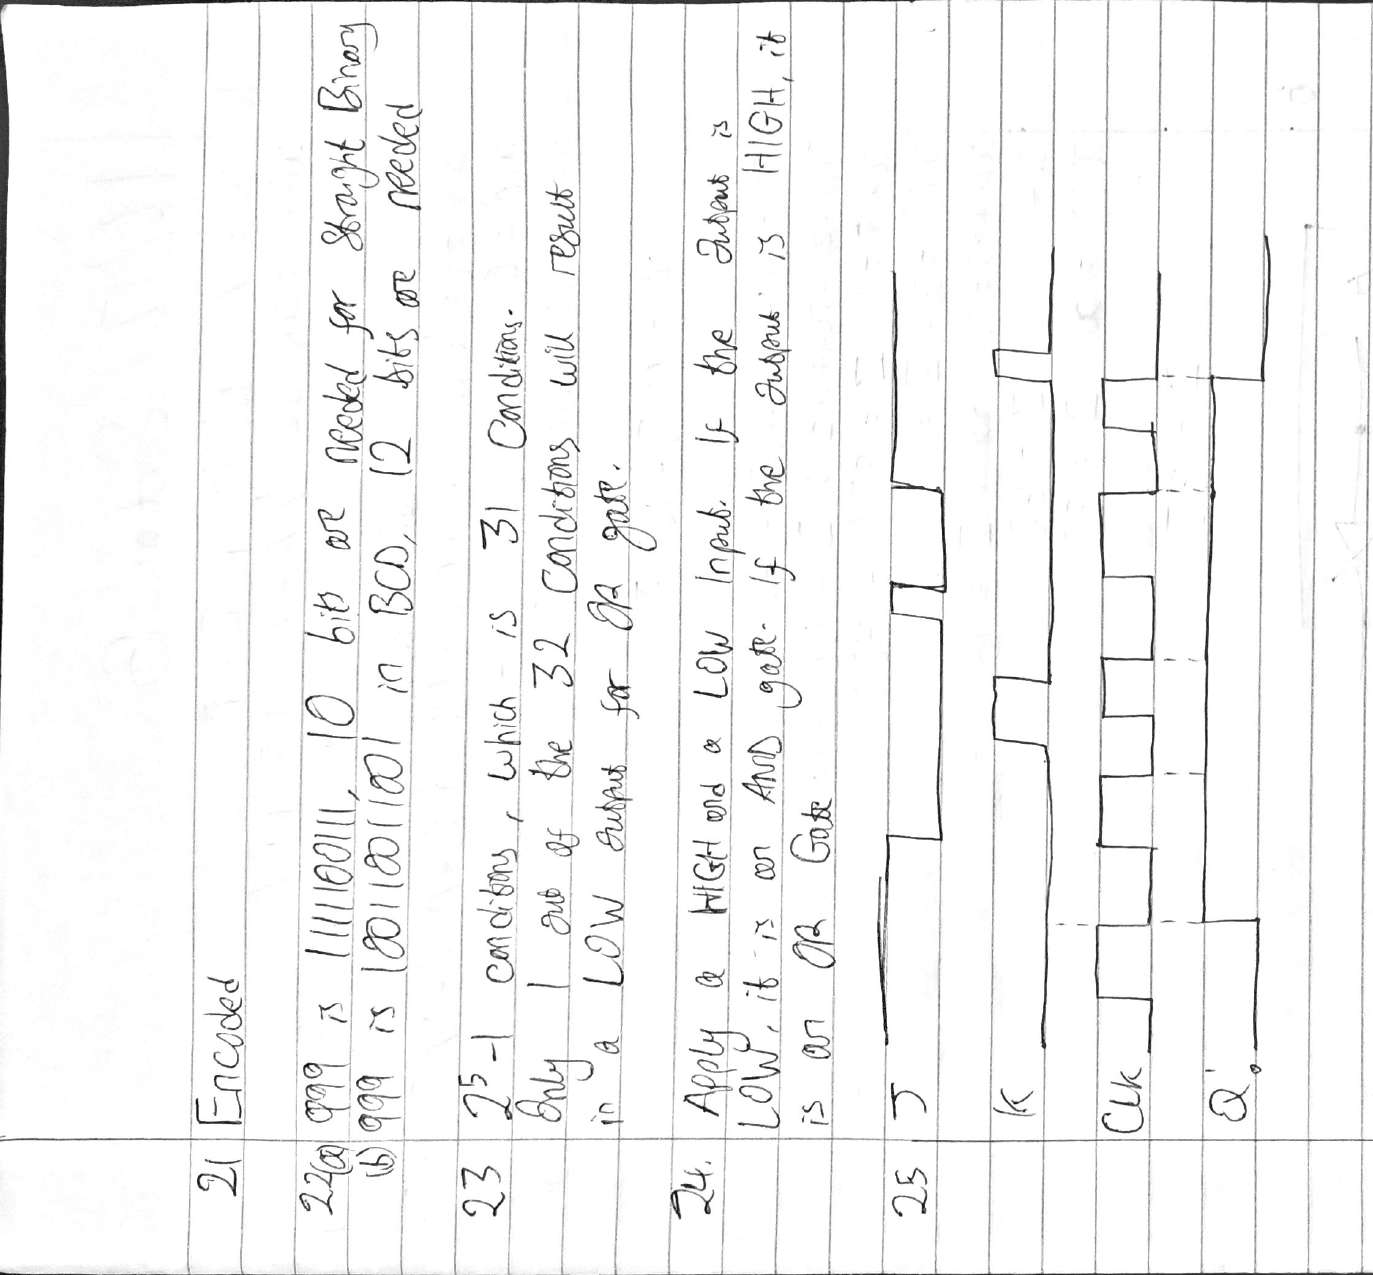 21 Encoded
22(a) 999 is 1111100111, 10 bits are needed for Straight Binary
(b) 999 is 100110011001 in BCD, 12 bits are needed
23 2⁵-1 conditions, which is 31 Conditions.
Only 1 out of the 32 Conditions will result
in a LOW output for OR gate.
24. Apply a HIGH and a LOW Input. If the output is
LOW, it is an AND gate. If the output is HIGH, it
is an OR Gate
25 J
K
CLK
Q